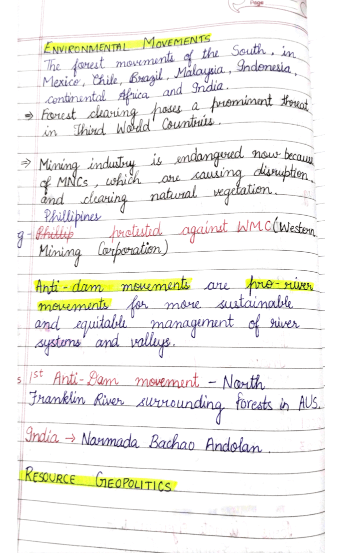 Page
ENVIRONMENTAL MOVEMENTS
The forest movements of the South, in
Mexico, Chile, Brazil, Malaysia, Indonesia,
continental Africa and India.
⇒ Forest clearing poses a prominent threat
in Third World Countries.
⇒ Mining industry is endangered now because
of MNCs, which are causing disruption
and clearing natural vegetation.
Phillipines
g Phillip protested against WMC (Western
Mining Corporation)
Anti-dam movements are pro-river
movements for more sustainable
and equitable management of river
systems and valleys.
s 1st Anti-Dam movement - North
Franklin River surrounding forests in AUS.
India → Narmada Bachao Andolan.
RESOURCE GEOPOLITICS